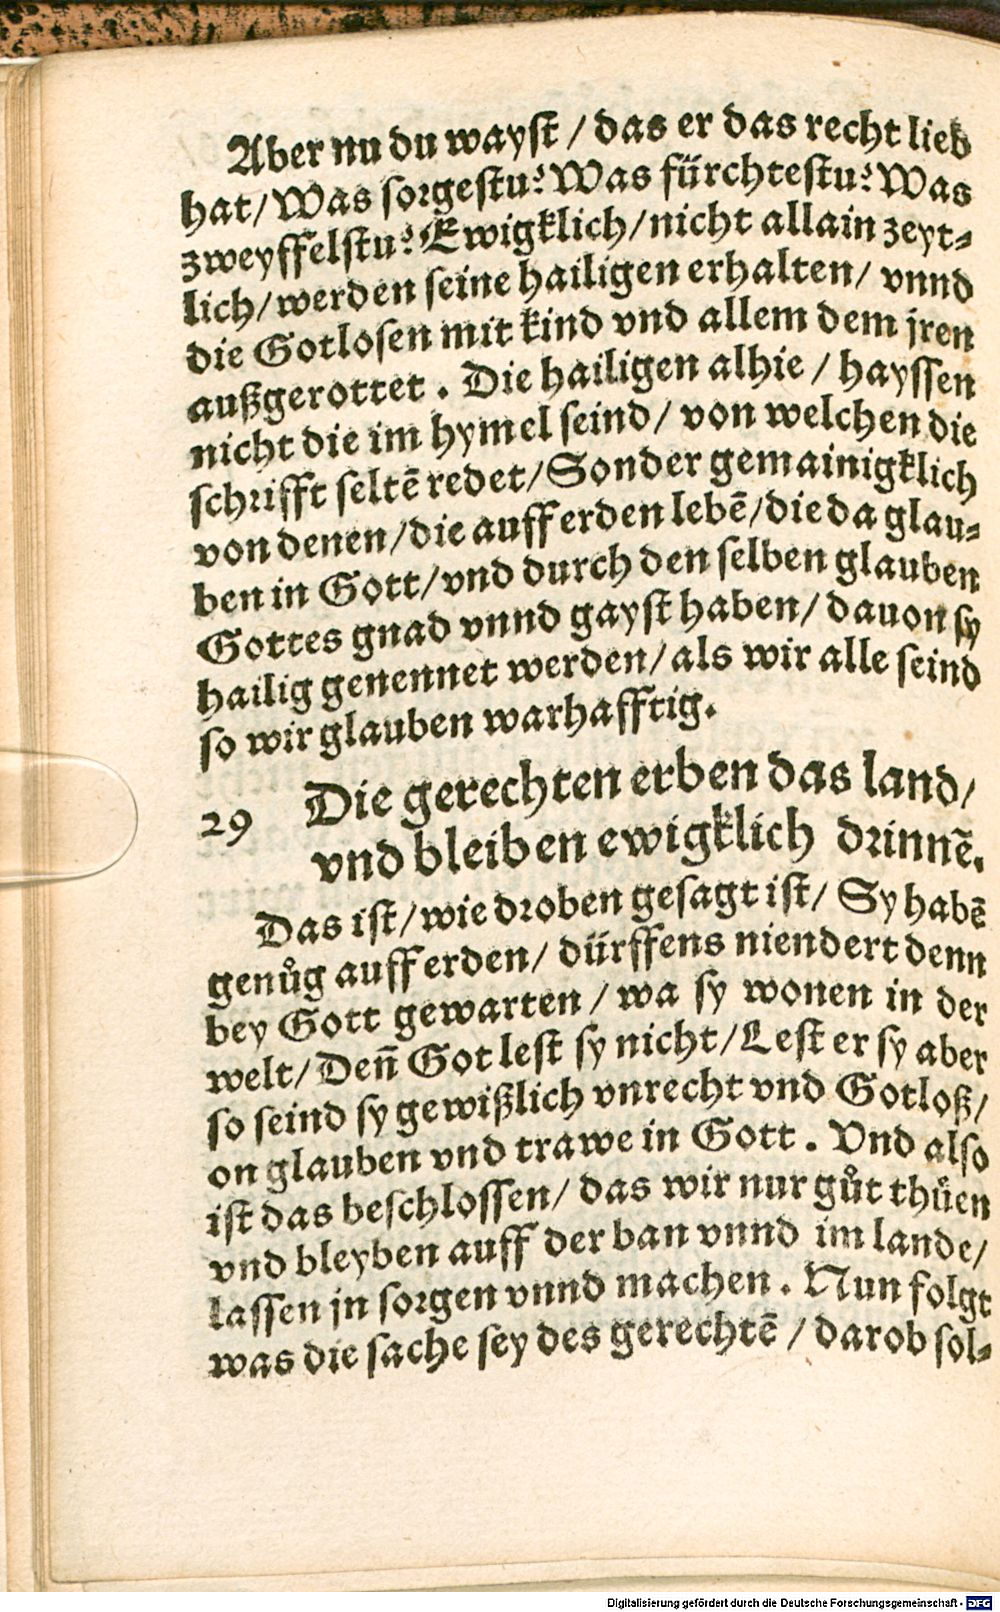 Aber nu du wayst / das er das recht lieb
hat / Was sorgestu? Was fürchtestu? Was
zweyffelstu? Ewigklich / nicht allain zeyt⸗
lich / werden seine hailigen erhalten / vnnd
die Gotlosen mit kind vnd allem dem jren
außgerottet . Die hailigen alhie / hayssen
nicht die im hymel seind / von welchen die
schrifft seltē redet / Sonder gemainigklich
von denen / die auff erden lebē / die da glau⸗
ben in Gott / vnd durch den selben glauben
Gottes gnad vnnd gayst haben / dauon sy
hailig genennet werden / als wir alle seind
so wir glauben warhafftig.
29 Die gerechten erben das land /
vnd bleiben ewigklich drinnē.
Das ist / wie droben gesagt ist / Sy habē
genůg auff erden / dürffens niendert denn
bey Gott gewarten / wa sy wonen in der
welt / Deñ Got lest sy nicht / Lest er sy aber
so seind sy gewißlich vnrecht vnd Gotloß /
on glauben vnd trawe in Gott . Vnd also
ist das beschlossen / das wir nur gůt thüen
vnd bleyben auff der ban vnnd im lande /
lassen jn sorgen vnnd machen . Nun folgt
was die sache sey des gerechtē / darob sol⸗
Digitalisierung gefördert durch die Deutsche Forschungsgemeinschaft - DFG